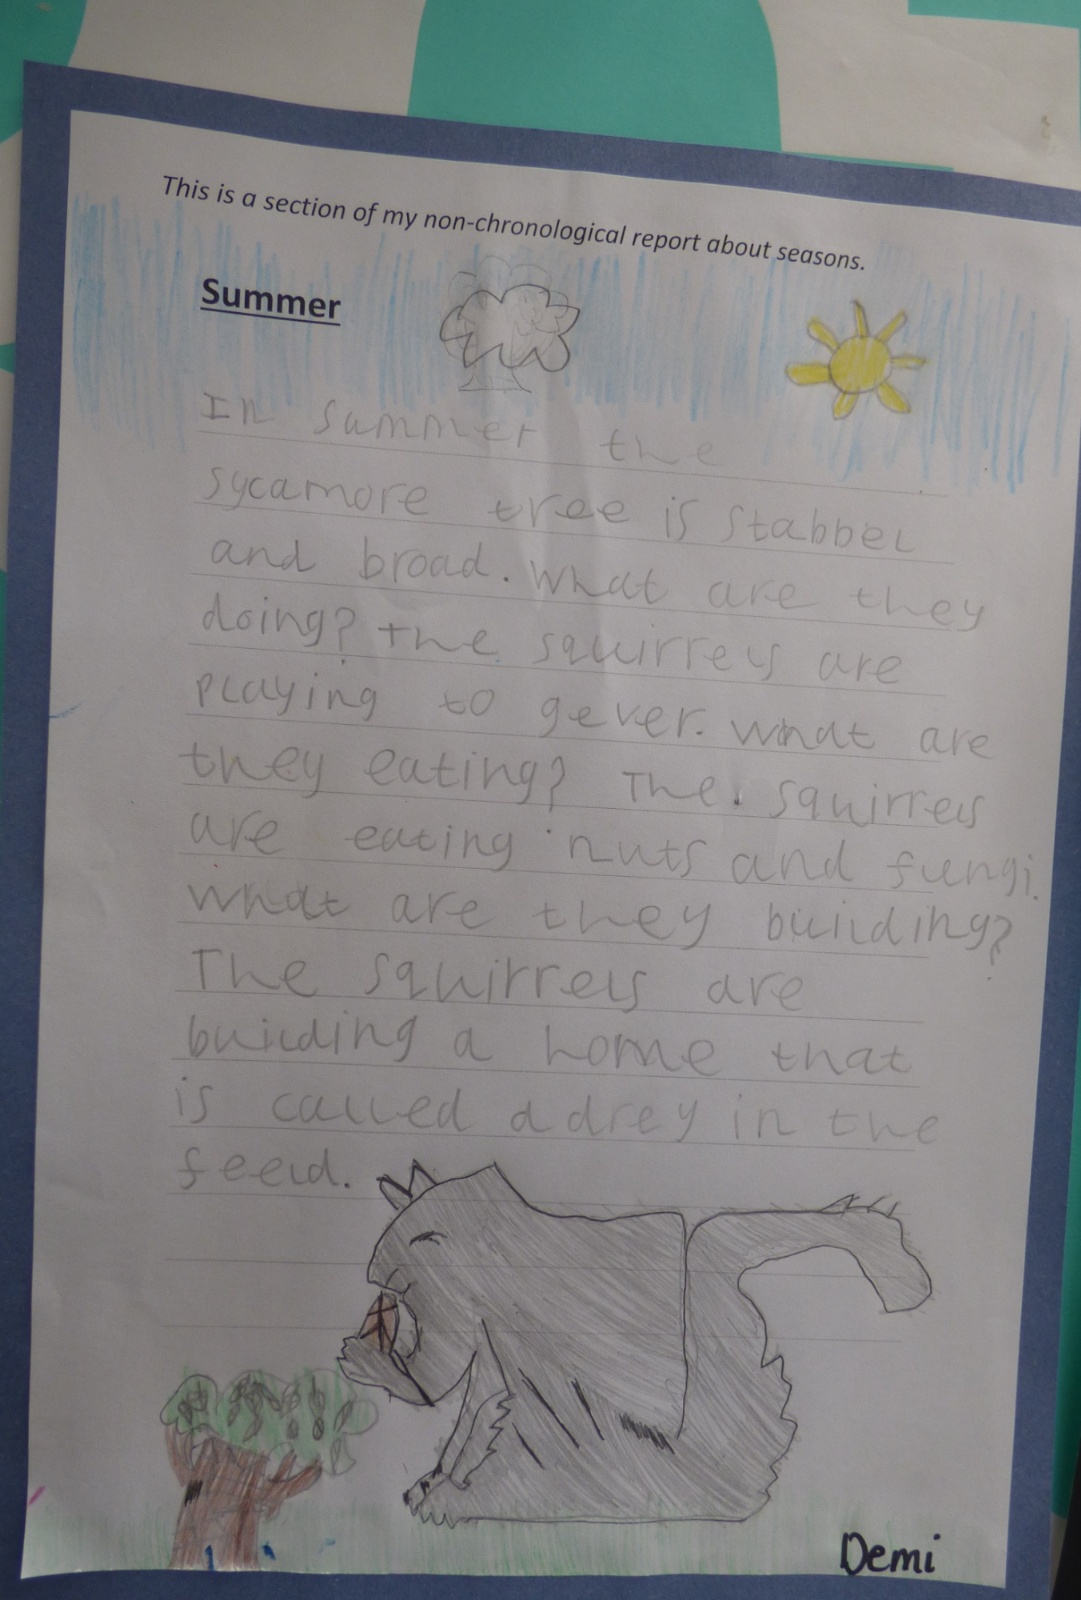 This is a section of my non-chronological report about seasons.
Summer
In summer the
sycamore tree is stabbel
and broad. What are they
doing? The squirrels are
playing to gever. What are
they eating? The squirrels
are eating nuts and fungi.
What are they building?
The squirrels are
building a home that
is called a drey in the
feeld.
Demi